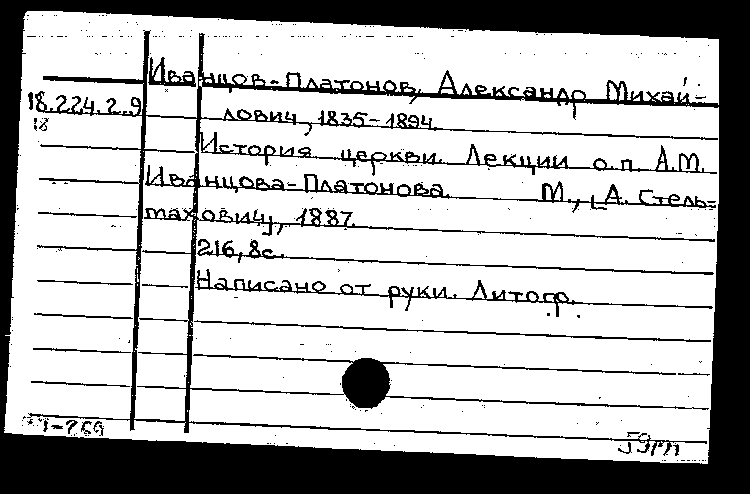 Иванцов-Платонов, Александр Михай-
18.224.2.9 лович, 1835-1894.
18
История церкви. Лекции о.п. А.М.
Иванцова-Платонова. М., [А. Стель-
махович], 1887.
216, 8с.
Написано от руки. Литогр.